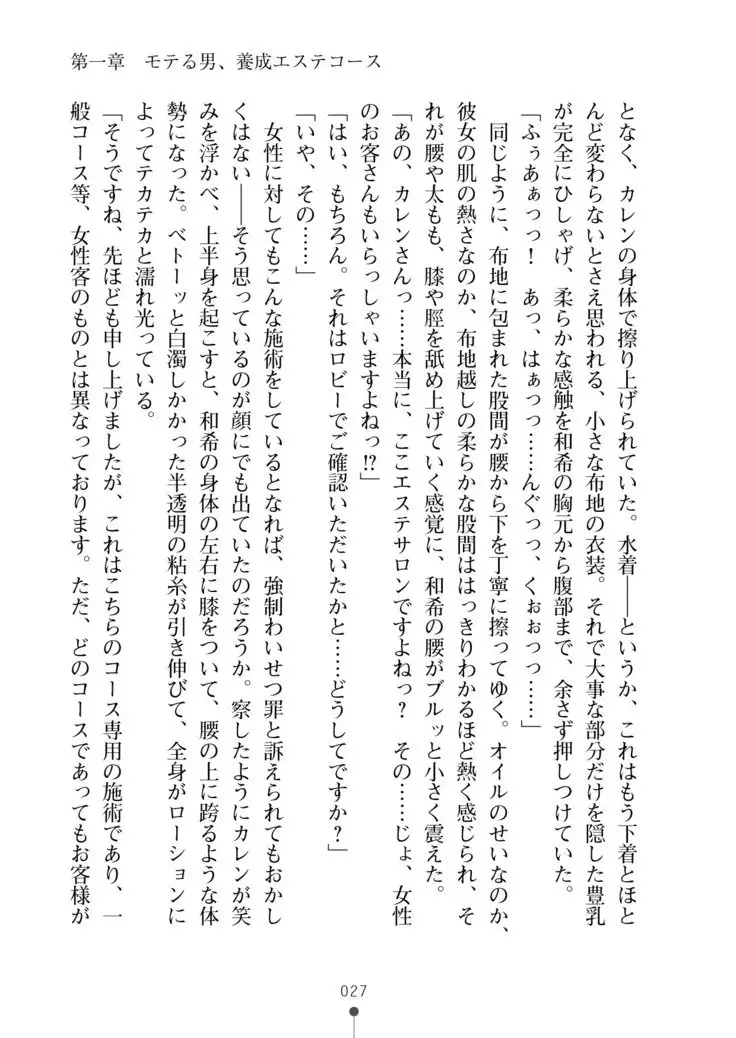 第一章　モテる男、養成エステコース
となく、カレンの身体で擦り上げられていた。水着――というか、これはもう下着とほと
んど変わらないとさえ思われる、小さな布地の衣装。それで大事な部分だけを隠した豊乳
が完全にひしゃげ、柔らかな感触を和希の胸元から腹部まで、余さず押しつけていた。
「ふぅあぁっっ！　あっ、はぁっっ……んぐっっ、くぉぉっっ……」
　同じように、布地に包まれた股間が腰から下を丁寧に擦ってゆく。オイルのせいなのか、
彼女の肌の熱さなのか、布地越しの柔らかな股間ははっきりわかるほど熱く感じられ、そ
れが腰や太もも、膝や脛を舐め上げていく感覚に、和希の腰がブルッと小さく震えた。
「あの、カレンさんっ……本当に、ここエステサロンですよねっ？　その……じょ、女性
のお客さんもいらっしゃいますよねっ!?」
「はい、もちろん。それはロビーでご確認いただいたかと……どうしてですか？」
「いや、その……」
　女性に対してもこんな施術をしているとなれば、強制わいせつ罪と訴えられてもおかし
くはない――そう思っているのが顔にでも出ていたのだろうか。察したようにカレンが笑
みを浮かべ、上半身を起こすと、和希の身体の左右に膝をついて、腰の上に跨るような体
勢になった。ベトーッと白濁しかかった半透明の粘糸が引き伸びて、全身がローションに
よってテカテカと濡れ光っている。
「そうですね、先ほども申し上げましたが、これはこちらのコース専用の施術であり、一
般コース等、女性客のものとは異なっております。ただ、どのコースであってもお客様が
027